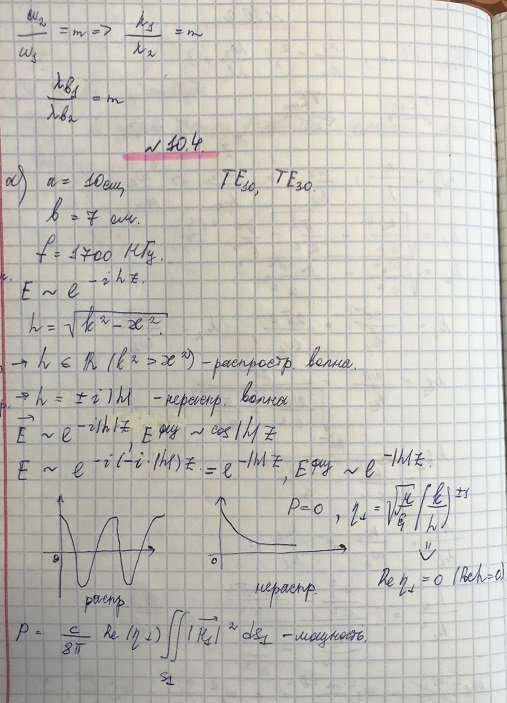 ω₂/ω₁ = m => λ₁/λ₂ = m
λв₁/λв₂ = m
~ 10.4.
а) a = 10 см, TE₁₀, TE₃₀.
b = 7 см.
f = 1700 МГц.
E ~ e^{-ihz}.
h = √(k² - æ²).
→ h ∈ ℝ (k² > æ²) - распростр. волна.
→ h = ± i|h| - нераспр. волна
E⃗ ~ e^{-i|h|z}, E^{физ} ~ cos|h|z
E ~ e^{-i(-i·|h|)z} = e^{-|h|z}, E^{физ} ~ e^{-|h|z}.
P=0, η⊥ = √(μ/ε) (k/h)^{±1}
⇓
Re η⊥ = 0 (Re h=0)
0
0
распр.
нераспр.
P = c/8π Re(η⊥) ∬_{S⊥} |H⃗⊥|² dS⊥ - мощность.